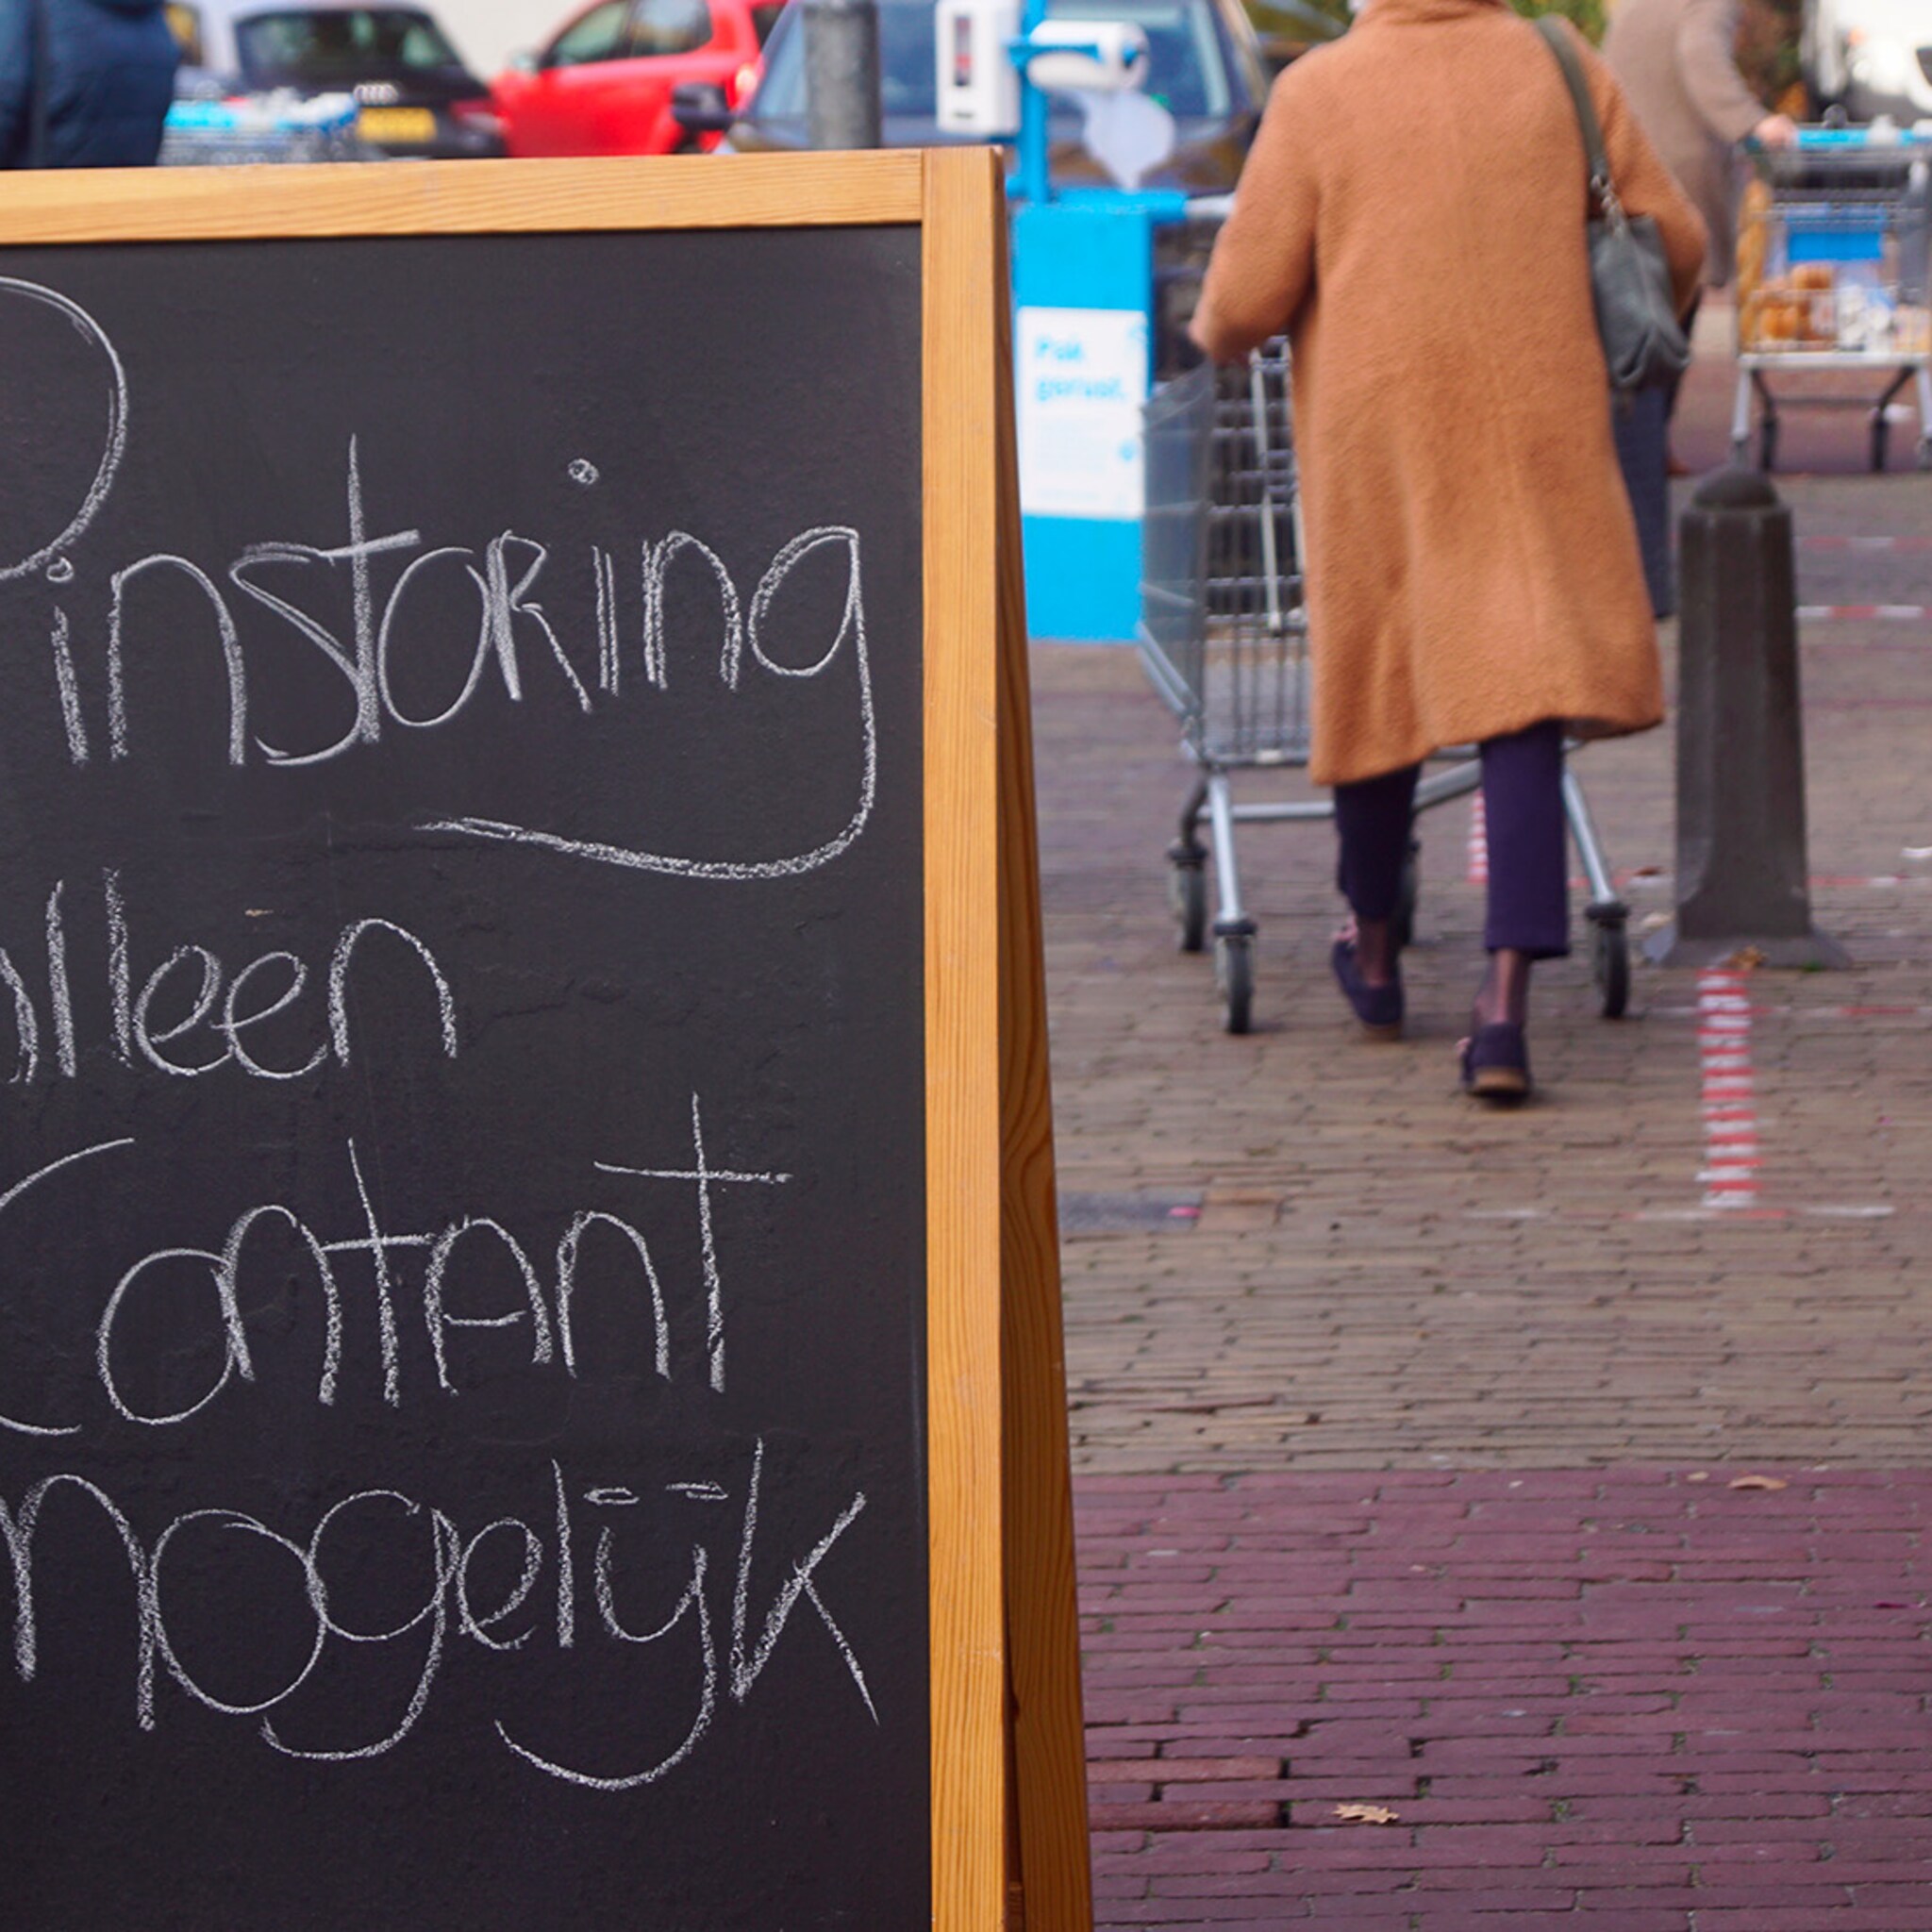 Pinstoring
alleen
Contant
mogelijk
Pak
gerust.